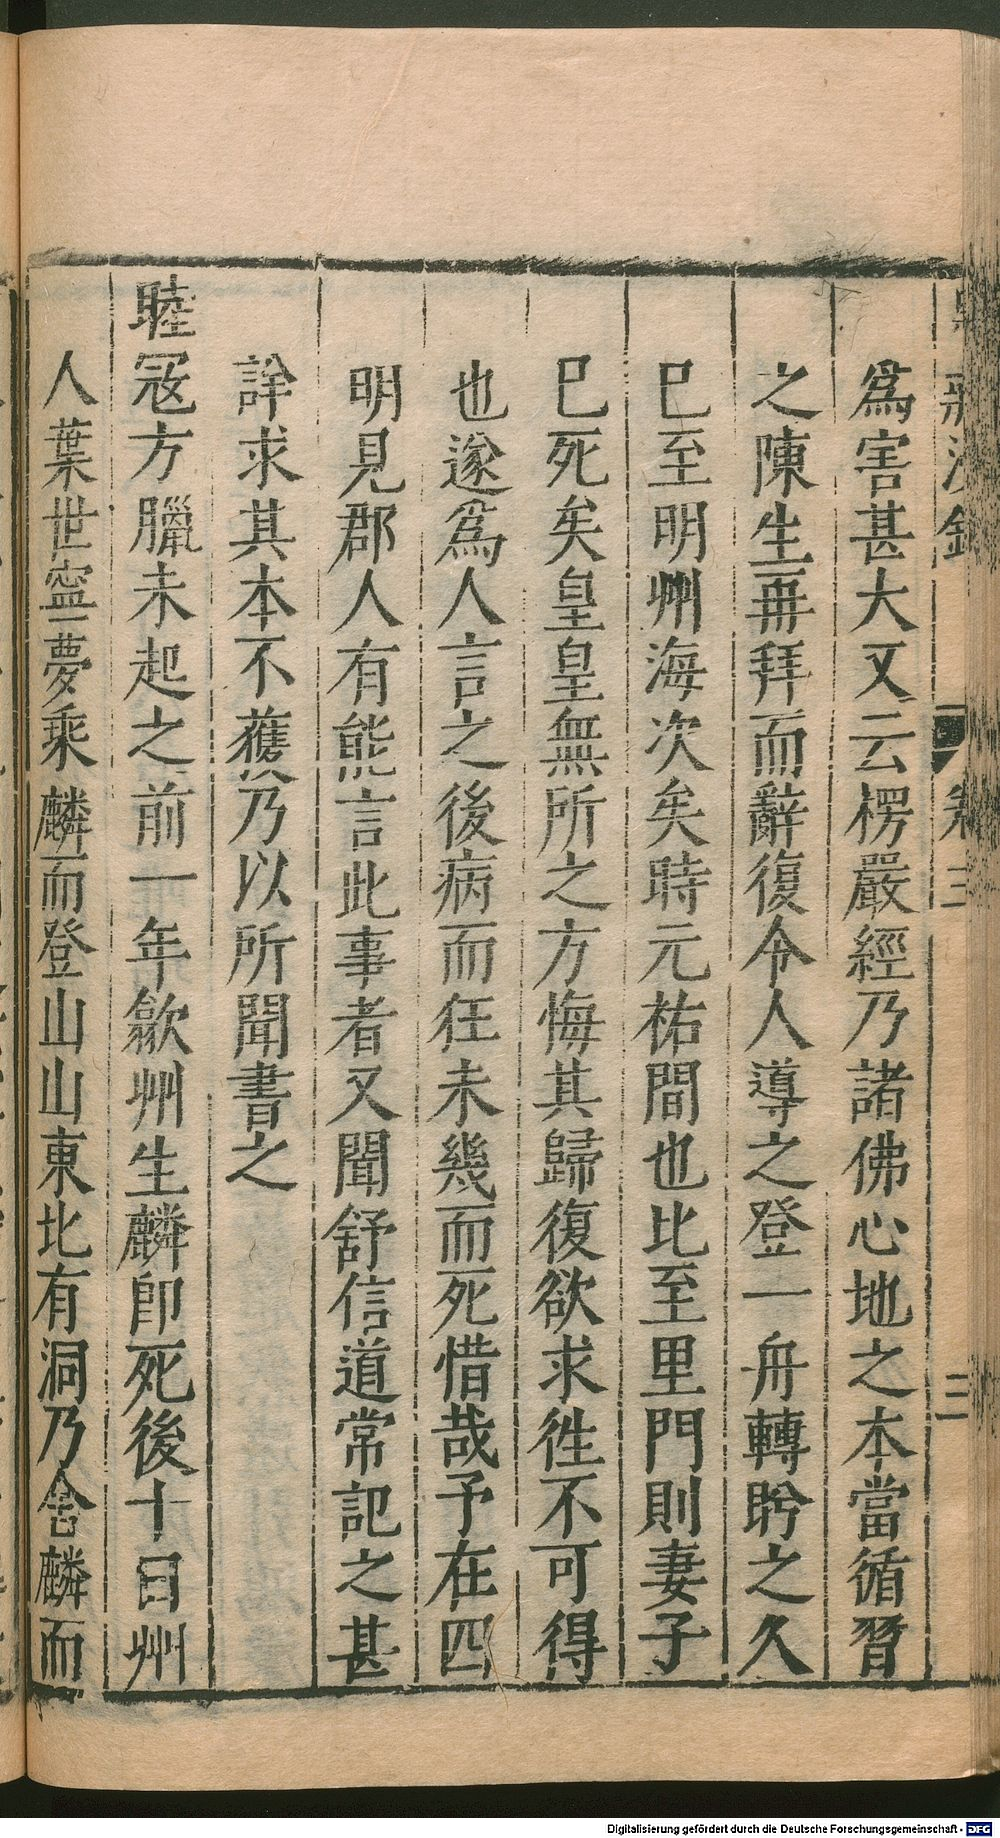 為害甚大又云楞嚴經乃諸佛心地之本當循習
之陳生再拜而辭復令人導之登一舟轉盻之久
巳至明州海次矣時元祐間也比至里門則妻子
巳死矣皇皇無所之方悔其歸復欲求徃不可得
也遂為人言之後病而狂未幾而死惜哉予在四
明見郡人有能言此事者又聞舒信道常記之甚
詳求其本不獲乃以所聞書之
睦寇方臘未起之前一年歙州生麟卽死後十日州
人葉世寧夢乘麟而登山山東北有洞乃舍麟而
卷三
二
Digitalisierung gefördert durch die Deutsche Forschungsgemeinschaft - DFG